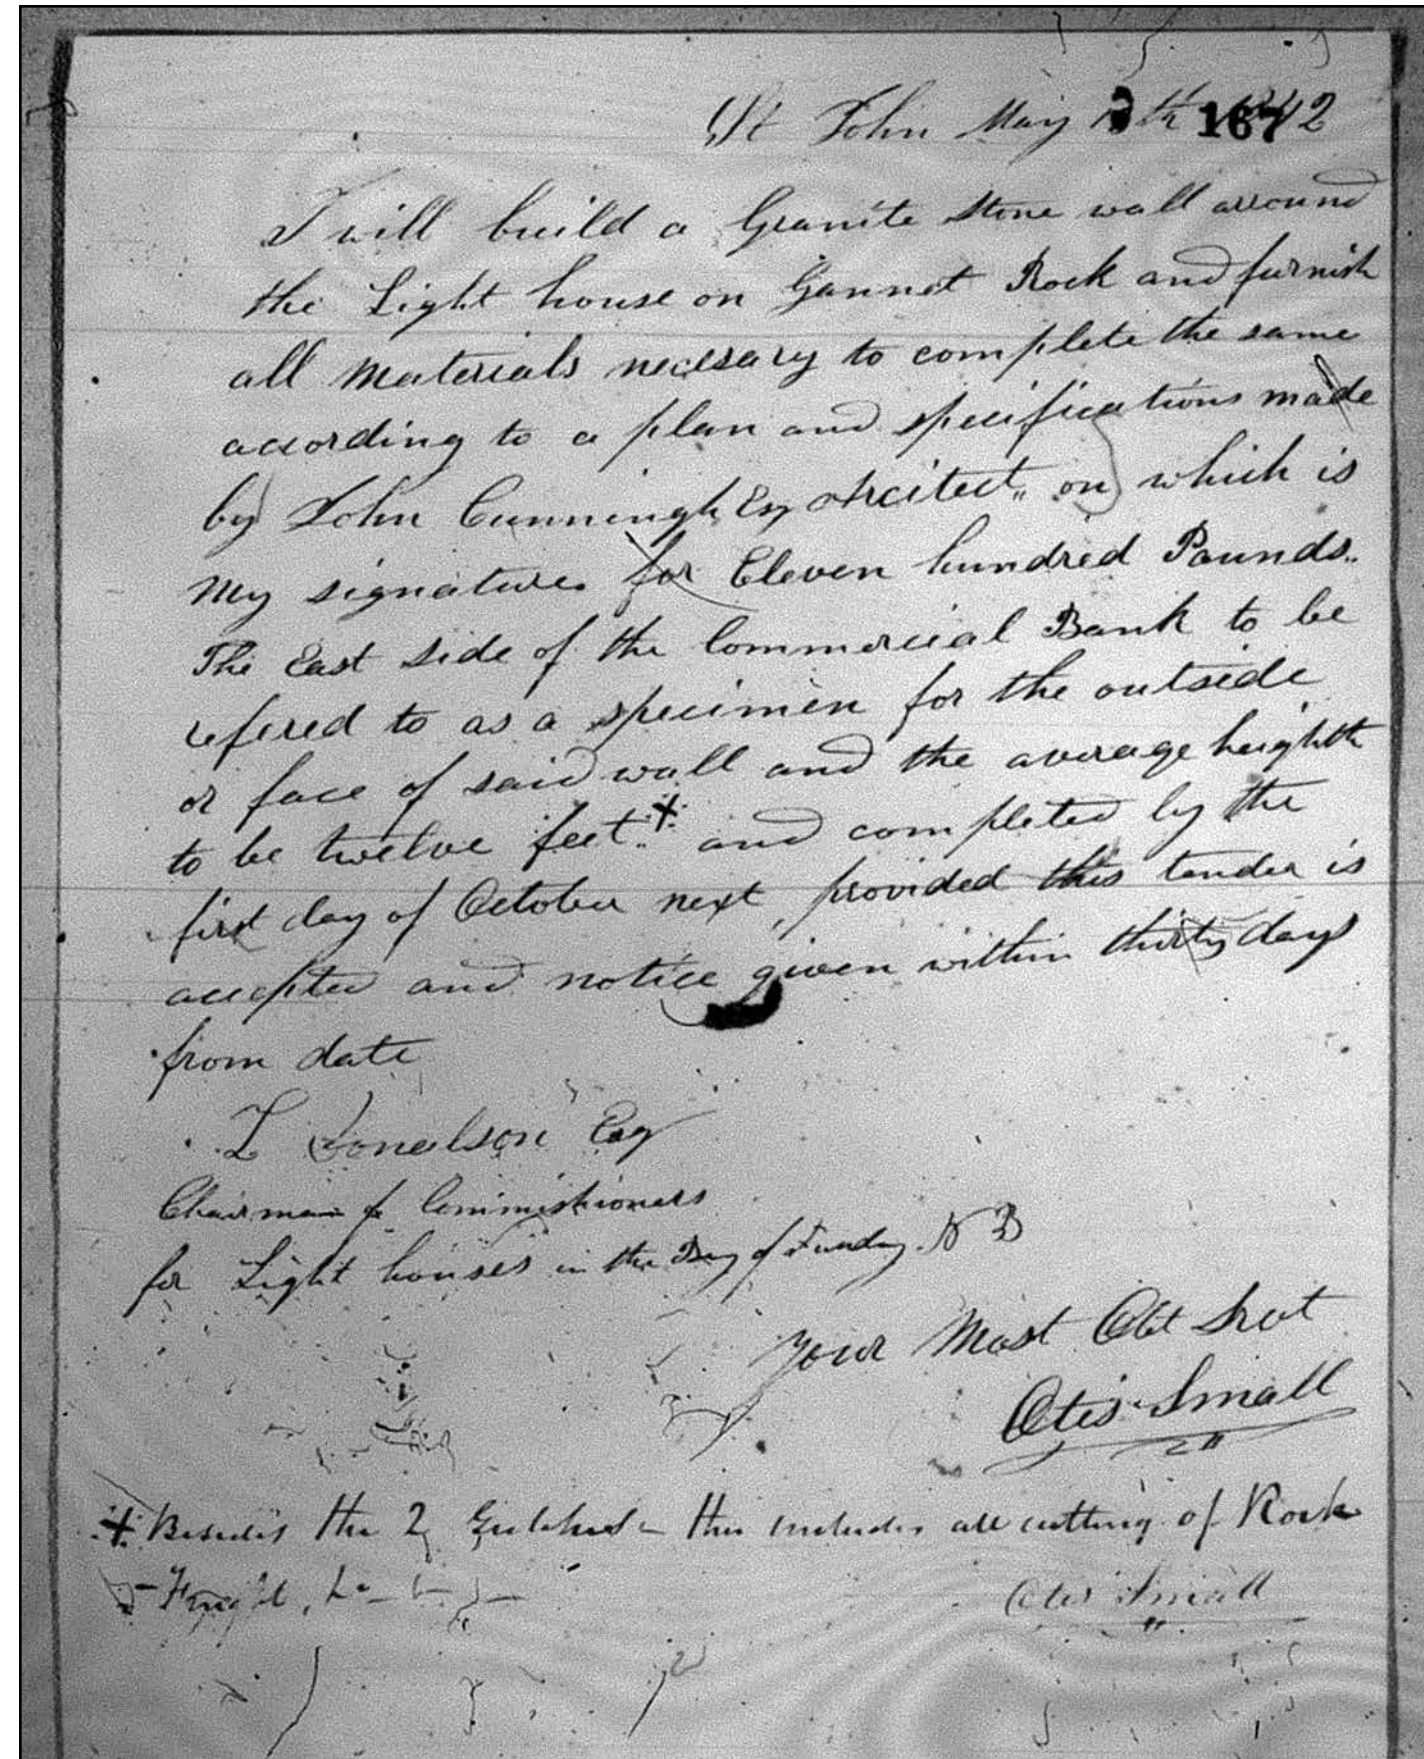 St John May th 1842
167
I will build a Granite Stone wall arround
the Light house on Gannet Rock and furnish
all Materials necesary to complete the same
according to a plan and specifications made
by John Cunningh Esq Arcitect„ on which is
My signature for Eleven hundred Pounds..
The East side of the Commercial Bank to be
refered to as a specimen for the outside
or face of said wall and the average heighth
to be twelve feet..+ and completed by the
first day of October next, provided this tender is
accepted and notice given within thirty days
from date
L Donelson Esq
Chairman of Commissioners
for Light houses in the Bay of Fundy. N B
Your Most Obt Srvt
Otis Small
+ Besides the 2 this includes all cutting of Rock
Freight,
Otis Small